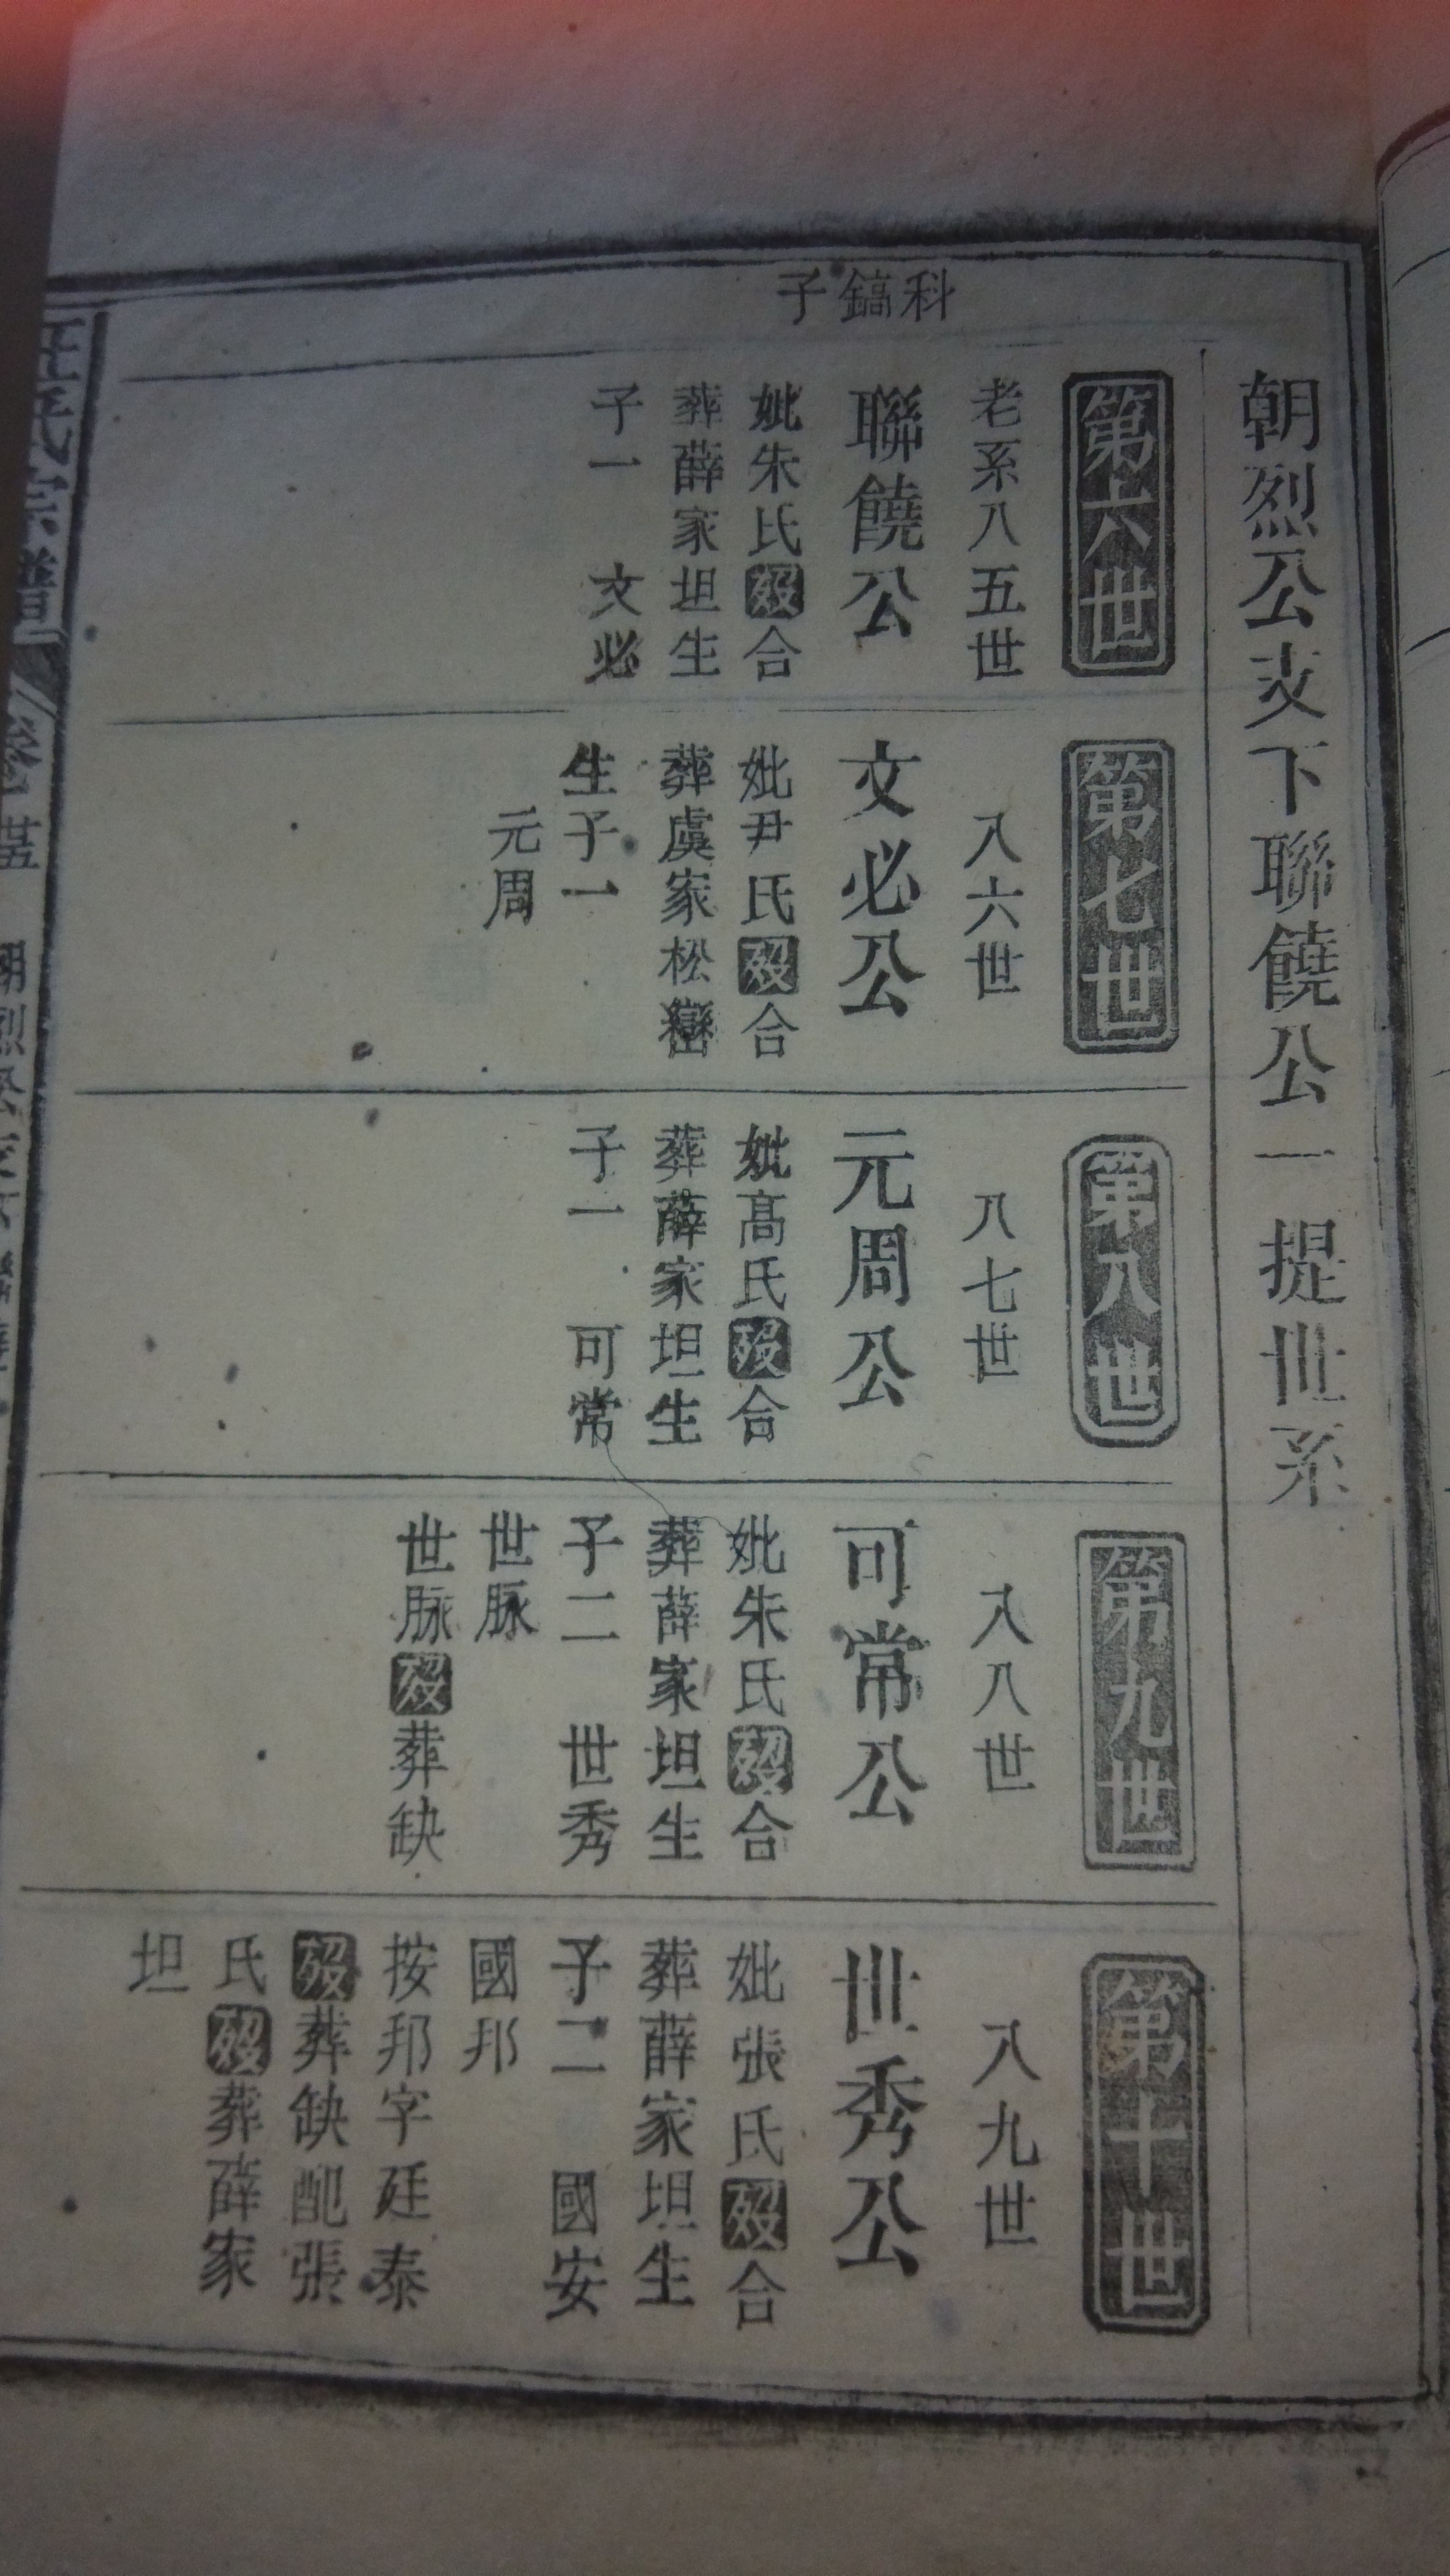 朝烈公支下聯饒公一提世系
科鎬子
第六世
老系八五世
聯饒公
妣朱氏歿合
葬薛家坦生
子一　文必
第七世
八六世
文必公
妣尹氏歿合
葬虞家松巒
生子一
元周
第八世
八七世
元周公
妣高氏歿合
葬薛家坦生
子一　可常
第九世
八八世
可常公
妣朱氏歿合
葬薛家坦生
子二　世秀
世脉
世脉歿葬缺
第十世
八九世
世秀公
妣張氏歿合
葬薛家坦生
子二　國安
國邦
按邦字廷泰
歿葬缺配張
氏歿葬薛家
坦
氏宗譜